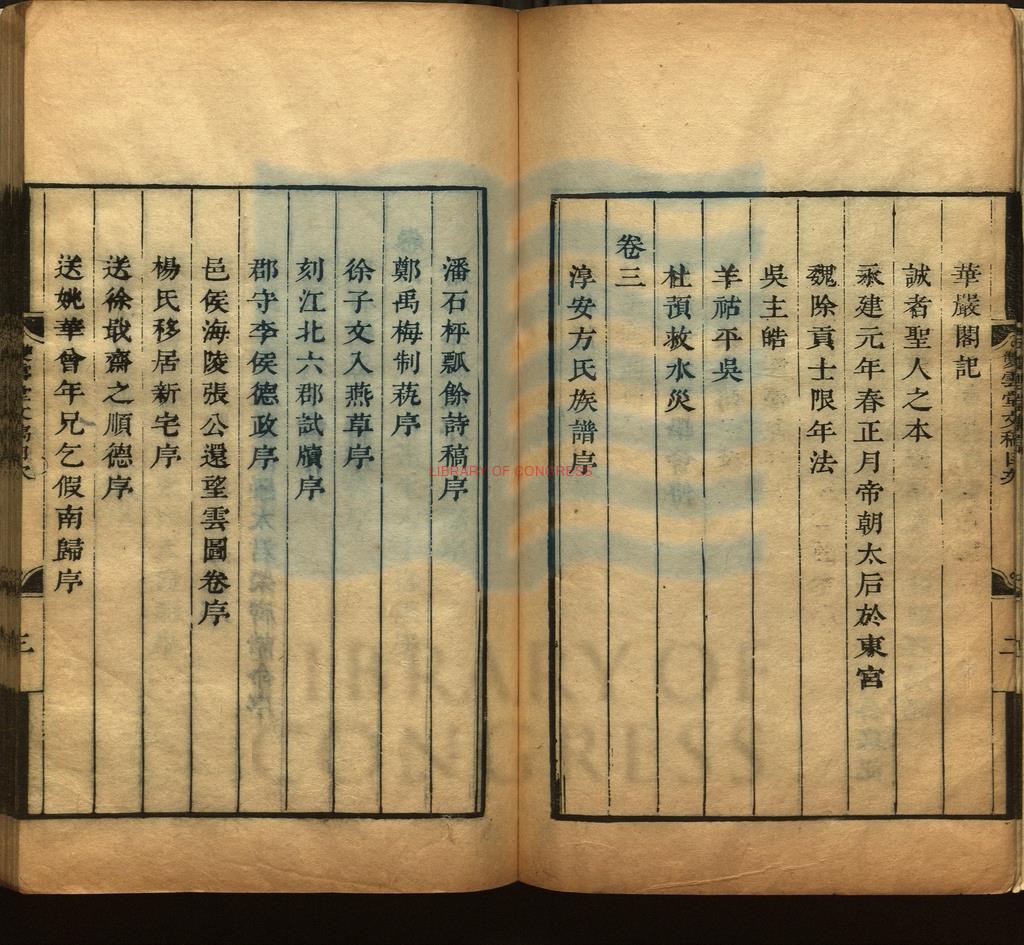 華嚴閣記
誠者聖人之本
永建元年春正月帝朝太后於東宮
魏除貢士限年法
吳主皓
羊祜平吳
杜預救水災
卷三
淳安方氏族譜序
潘石枰瓢餘詩稿序
鄭禹梅制萟序
徐子文入燕草序
刻江北六郡試牘序
郡守李侯德政序
邑侯海陵張公還望雲圖卷序
楊氏移居新宅序
送徐戢齋之順德序
送姚華曾年兄乞假南歸序
二
三
LIBRARY OF CONGRESS